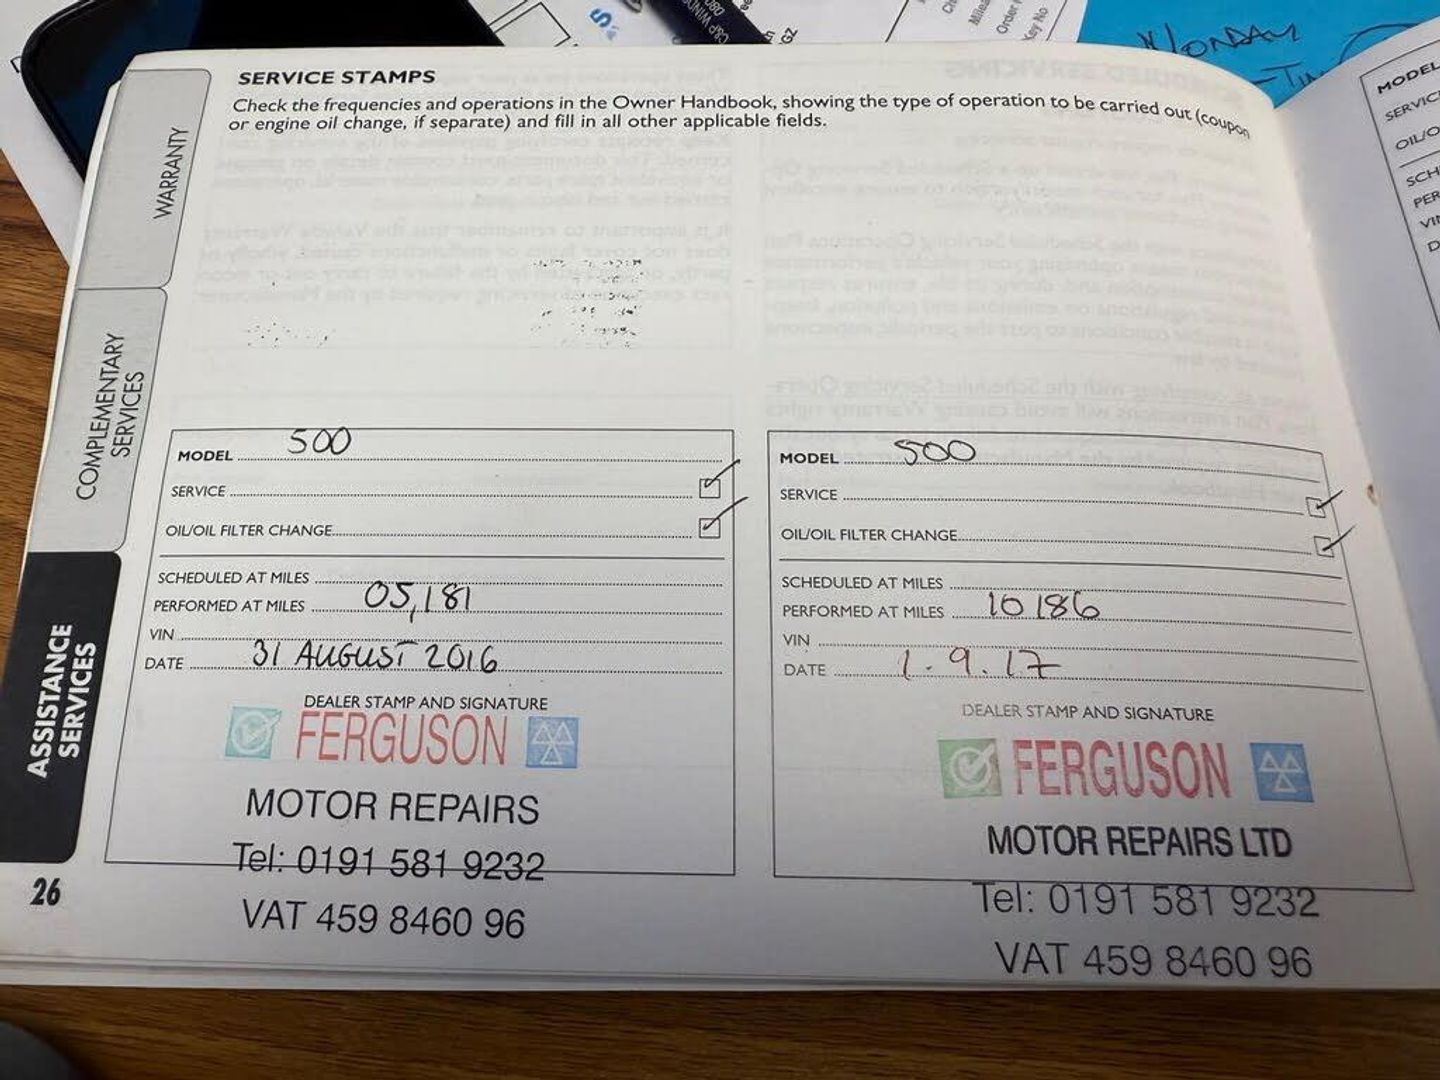 SERVICE STAMPS
Check the frequencies and operations in the Owner Handbook, showing the type of operation to be carried out (coupon
or engine oil change, if separate) and fill in all other applicable fields.
WARRANTY
COMPLEMENTARY
SERVICES
ASSISTANCE
SERVICES
26
MODEL 500
SERVICE
OIL/OIL FILTER CHANGE
SCHEDULED AT MILES
PERFORMED AT MILES 05,181
VIN
DATE 31 AUGUST 2016
DEALER STAMP AND SIGNATURE
FERGUSON
MOTOR REPAIRS
Tel: 0191 581 9232
VAT 459 8460 96
MODEL 500
SERVICE
OIL/OIL FILTER CHANGE
SCHEDULED AT MILES
PERFORMED AT MILES 10186
VIN
DATE 1.9.17
DEALER STAMP AND SIGNATURE
FERGUSON
MOTOR REPAIRS LTD
Tel: 0191 581 9232
VAT 459 8460 96
MONDAY
MODEL
Key No